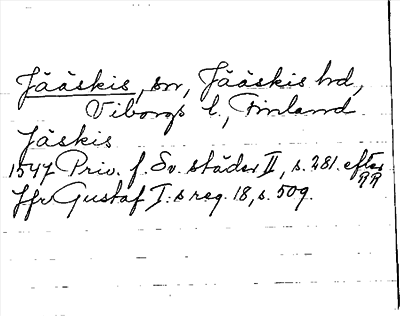 Jääskis, sn, Jääskis hd,
Viborgs l., Finland
Jäskis
1547 Priv. f. Sv. städer II, s. 281. efter
RR
Jfr Gustaf I:s reg. 18, s. 509.